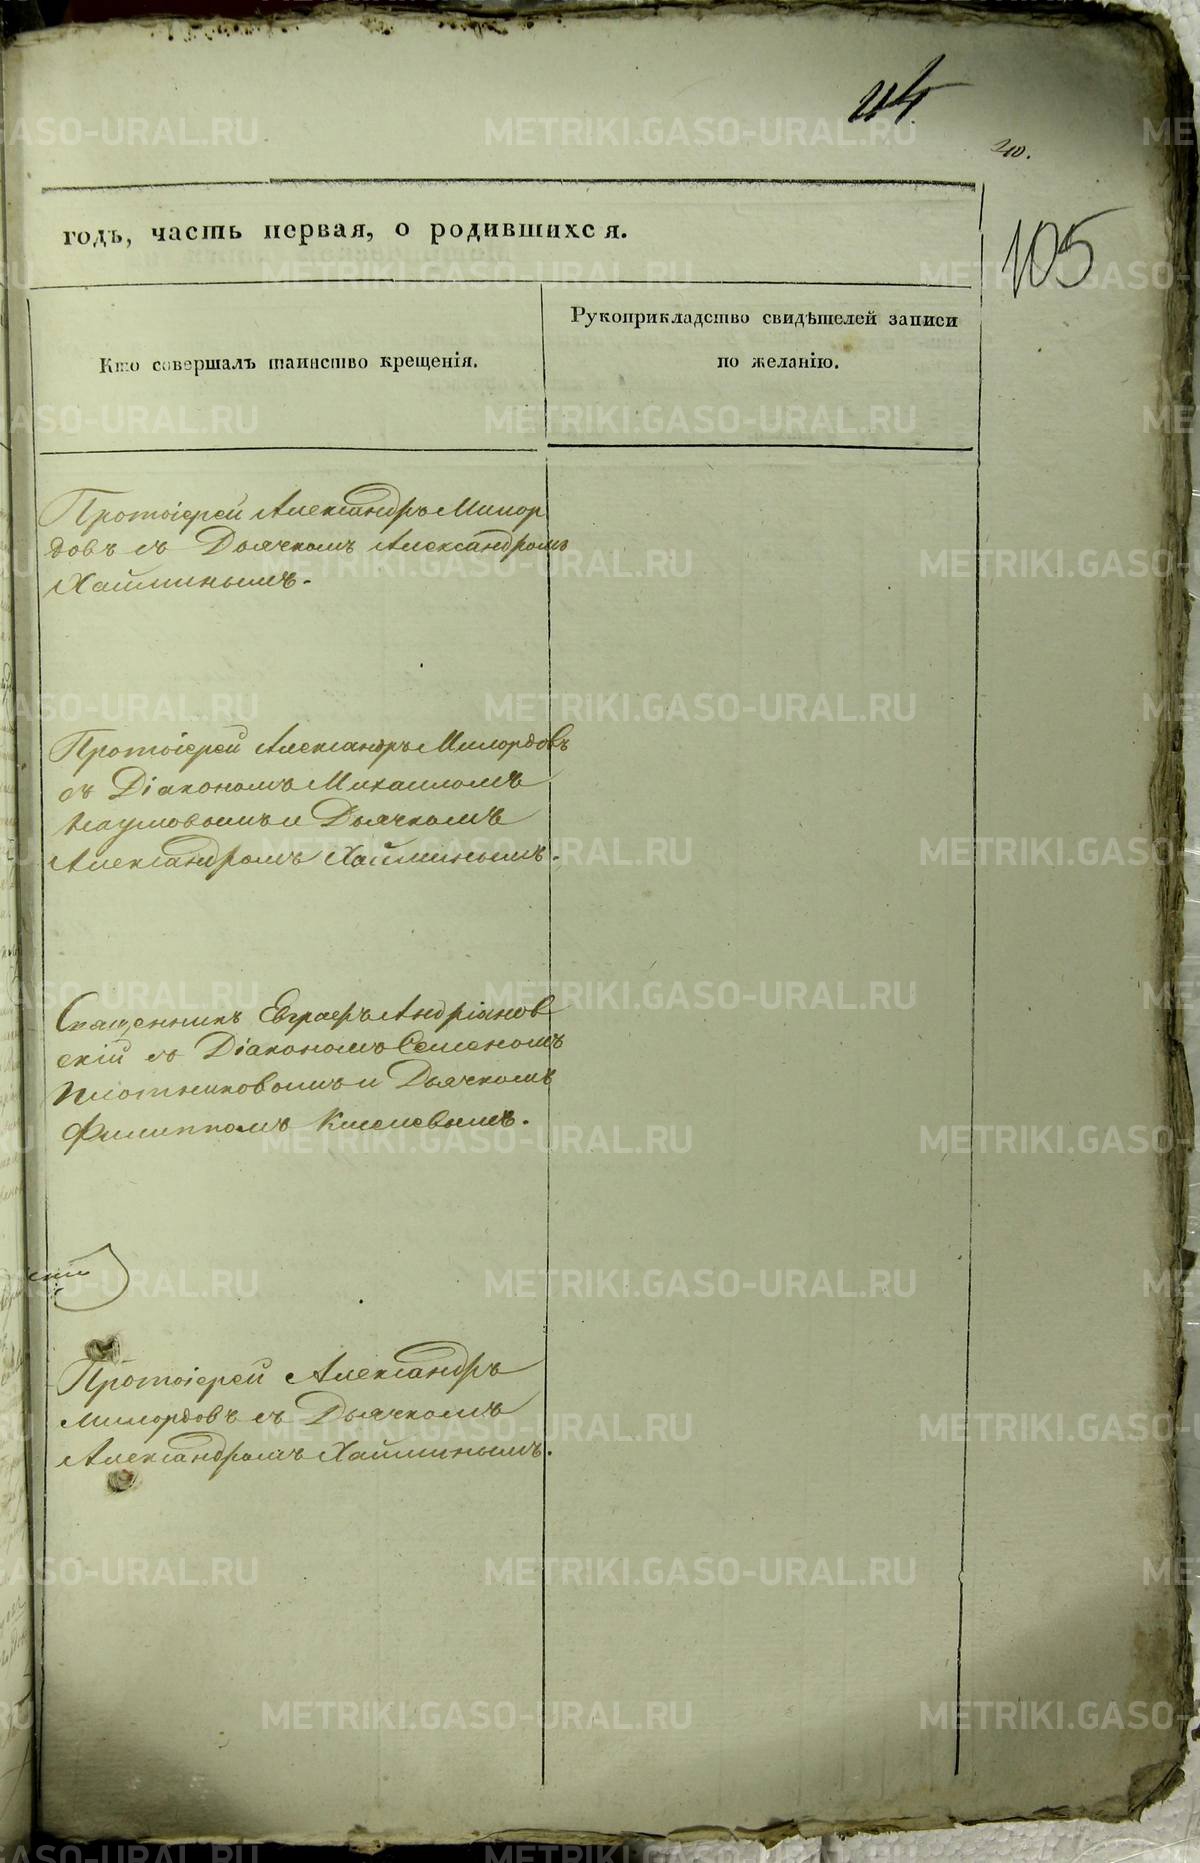 114.
210.
105
годъ, часть первая, о родившихся.
Кто совершалъ таинство крещенія.
Рукоприкладство свидѣтелей записи
по желанію.
Протоіерей Александръ Милор
довъ съ Дьячкомъ Александромъ
Хайминымъ.
Протоіерей Александръ Милордовъ
съ Діакономъ Михаиломъ
Наумовымъ и Дьячкомъ
Александромъ Хайминымъ.
Священникъ Евграфъ Андріанов
скій съ Діакономъ Семеномъ
Плотниковымъ и Дьячкомъ
Филиппомъ Киселевымъ.
скій
Протоіерей Александръ
Милордовъ съ Дьячкомъ
Александромъ Хайминымъ.
METRIKI.GASO-URAL.RU